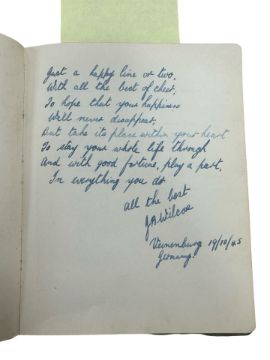 Just a happy line or two,
With all the best of cheer,
To hope that your happiness
Will never disappear.
But take its place within your heart
To stay your whole life through
And with good fortune, play a part,
In everything you do
All the best
JA Wilcox
19/10/45
Germany.